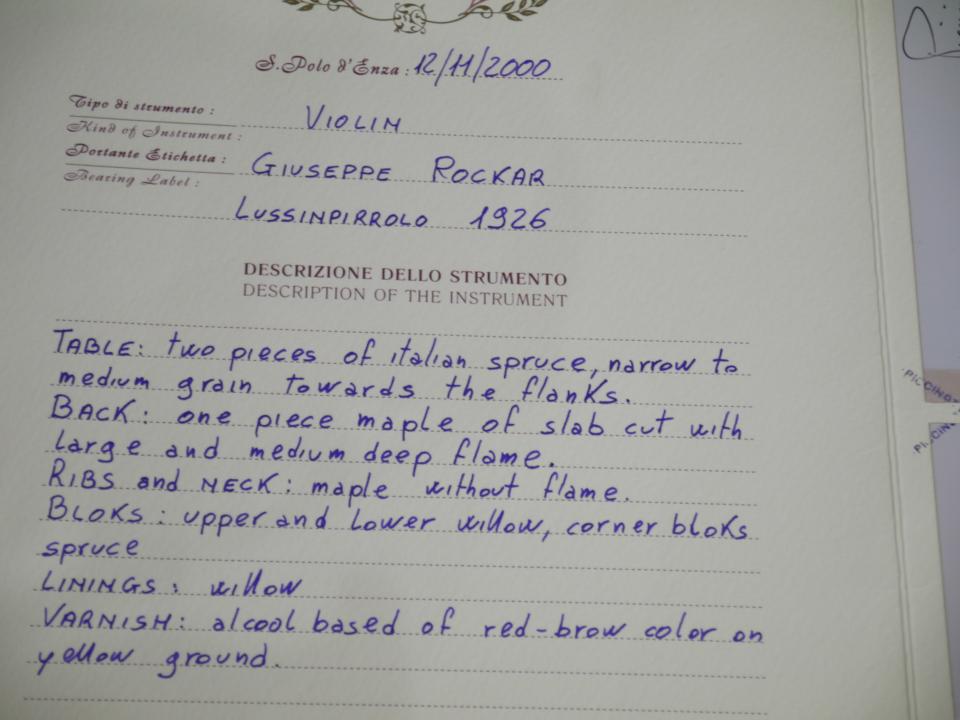 S. Polo d'Enza : 12/11/2000
Tipo di strumento :
Kind of Instrument : VIOLIN
Portante Etichetta : GIUSEPPE ROCKAR
Bearing Label :
LUSSINPIRROLO 1926
DESCRIZIONE DELLO STRUMENTO
DESCRIPTION OF THE INSTRUMENT
TABLE: two pieces of italian spruce, narrow to
medium grain towards the flanks.
BACK: one piece maple of slab cut with
large and medium deep flame.
RIBS and NECK: maple without flame.
BLOKS: upper and lower willow, corner bloks
spruce
LININGS: willow
VARNISH: alcool based of red-brow color on
yellow ground.